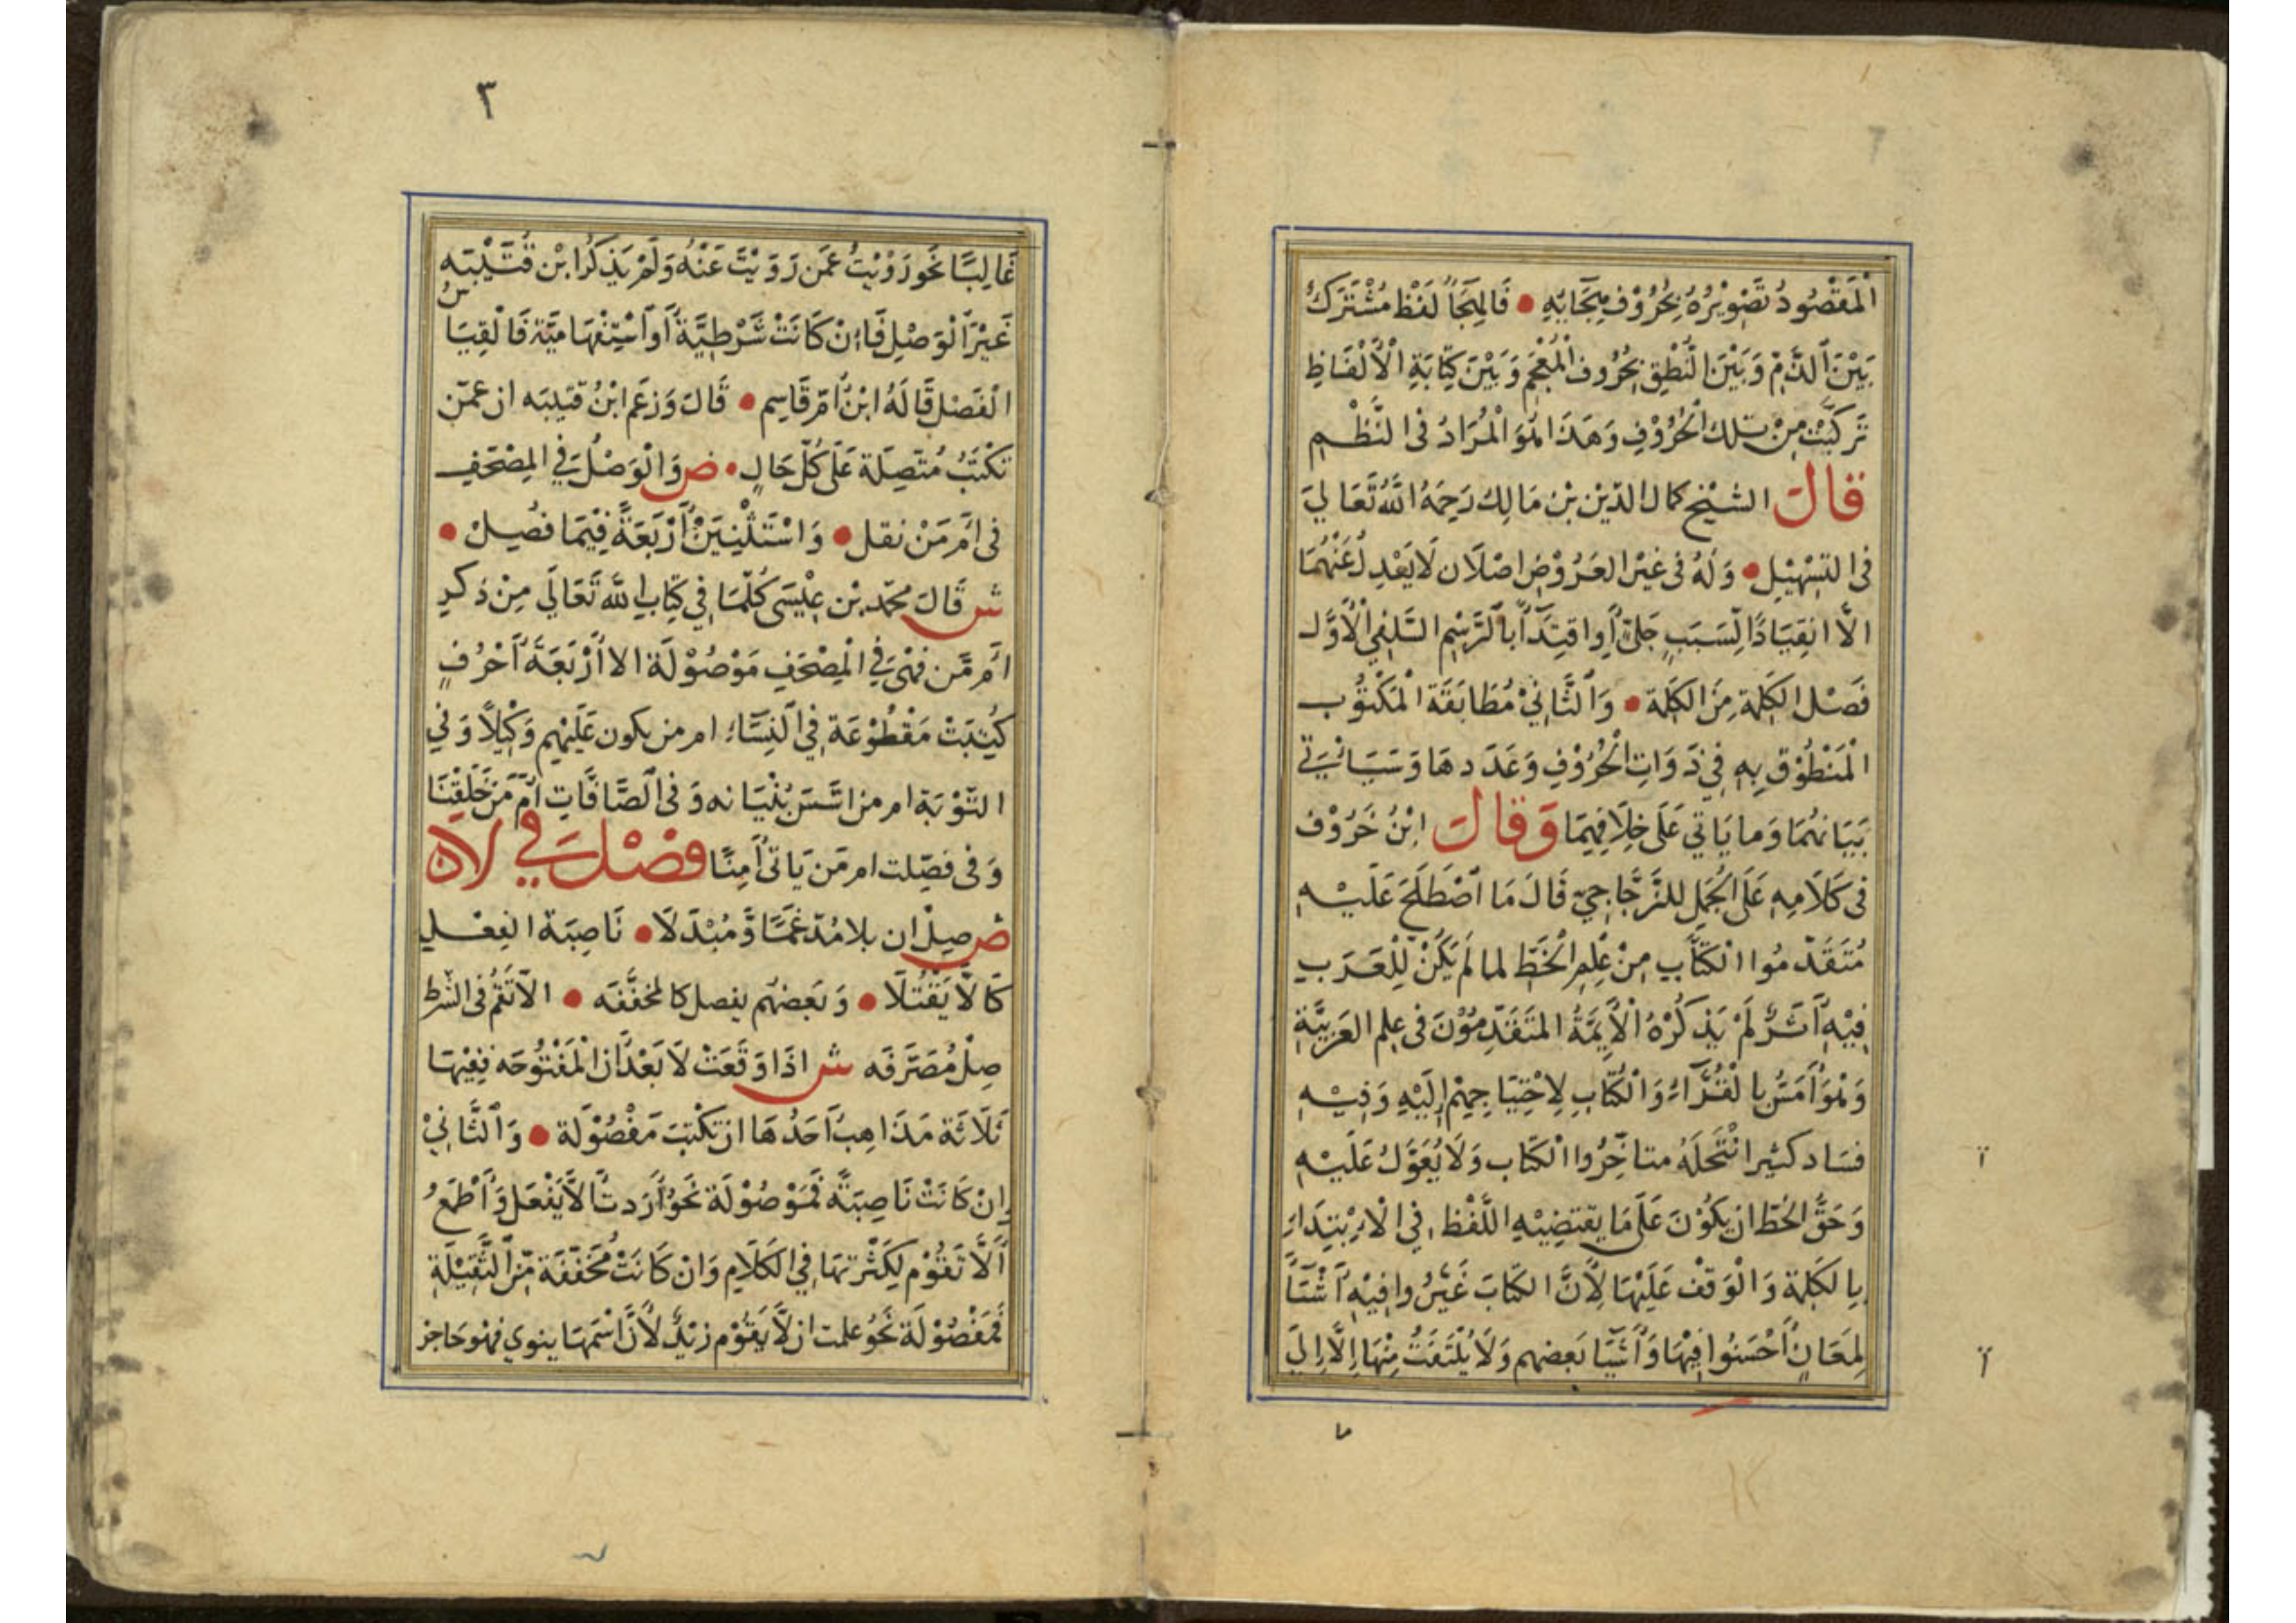 اَلْمَقْصُودُ تَصْوِيْرُهُ بِحُرُوْفِ هِجَائِهِ • فَالهِجَاُ لَفْظ مُشْتَرَكٌ
بَيْنَ ٱلذَّمِّ وَبَيْنَ النُّطْقِ بِحُرُوفِ الْمُعْجَمِ وَبَيْنَ كِتَابَةِ الْأَلْفَاظِ
تَرَكَّبَتْ مِنْ تِلكَ الْحُرُوْفِ وَهَذَا هُوَ الْمُرَادُ فى النَّظْمِ
قالَ الشيْخ كمال الدّيْن بْن مَالِك رَحِمَهُ اللَّهُ تَعَاليَ
فى التسْهِيْلِ • وَلَهُ فى غيْرِ العَرُوْضِ اصْلَان لَا يَعْدِلُ عَنْهُمَا
الاَّ انقِيَادًا لِسَبَبٍ جَلىٍّ أَوِ اقتِدَآً بِالرَّسْمِ السَّلَفِي الْأوَّل
فَصْل الكَلِمَة مِنَ الكَلِمَة • وَالثَّانِيْ مُطَابَقَة الْمَكْتُوب
الْمَنْطُوْق بِهِ فِي ذَوَاتِ الْحُرُوْفِ وَعَدَدهَا وَسَيَأتيْ
بَيَانهُمَا وَما يَاتي عَلَى خِلَافِهِمَا وَقالَ ابْنُ خَرُوْف
فى كَلَامِهِ عَلَى الجُمَلِ للزَّجَّاجِيّ قَالَ مَا اصْطَلَحَ عَلَيْهِ
مُتَقَدِّمُوا الْكتّاب مِنْ عِلْمِ الْخَطِّ لما لَمْ يَكُنْ لِلْعَرَبِ
فِيْهِ أَثَرٌ لَمْ يَذكُرْهُ الْأَيِمَّةُ المتَقَدِّمُوْنَ فى عِلمِ العَرَبِيَّة
وَهُوَ أَمَسُّ بِالْقُرَّاءِ وَالْكُتَّابِ لِاحْتِيَاجِهِمْ إِلَيْهِ وَفِيْهِ
فسَاد كثير انْتَحَلَهُ متاخِّرُوا الْكتّاب وَلَا يُعَوَّلُ عَلَيْهِ
وَحَقُّ الخطّ ان يَكُوْنَ عَلَى مَا يقتضِيْهِ اللَّفْظ فِي الْإبْتِدَاءِ
بِالكَلِمَة وَالْوَقْف عَلَيْهَا لِأنَّ الكتّابَ غَيَّرُوا فِيْهِ أَشْيَآً
لِمَعَانٍ أَحْسَنُوا فِيْهَا وَأَسَآ بَعضهم وَلَا يُلْتَفَتُ مِنْهَا إِلَّا إِلَى
٣
غَالِبًا نَحْو رَوْيتُ عَمَّن رَوَيْتَ عَنْهُ وَلَمْ يَذكُرْ ابْن قُتَيْبَه
غَيْرَ الْوَصْلِ فَاِنْ كَانَتْ شَرْطِيَّةً أَوْ اسْتِفْهَامِيَّة فَالْقِيَاسُ
الْفَصْل قَالَهُ ابْنُ اُمّ قَاسِم • قَالَ وَزعَم ابْنُ قتيبَه ان عمّن
تكْتَبُ مُتّصِلَة عَلَى كُلّ حَالٍ • ض وَالْوَصْلُ فِي المِصْحَفِ
فى أمّ مَنْ نقل • وَاسْتَثْنِيَنْ أَرْبَعَةً فِيْمَا فصِلْ •
ش قَالَ محمّد بْن عِيْسَى كُلّمَا فِي كِتَابِ اللهِ تَعَالَي مِنْ ذكرِ
امّ مّن فهْيَ فِي الْمِصْحَفِ مَوْصُوْلَة الا أَرْبَعَةَ أَحْرُفٍ
كُتِبَتْ مَقْطُوْعَة فِي النِّسَاء ام من يكون عَلَيْهِم وَكِيْلًا وَفي
التَّوْبَة ام من اسَّسَ بُنْيَانه وَفى الصَّافّاتِ أم مّنْ خَلَقْنَا
وَفى فصّلت ام مَن يَاتى اَمِنًا فصْلٌ فِي لان
ض صِلْ ان بلا مُدّغمًا وَّمُبْدَلَا • نَاصِبَة الفِعْلِ
كَالَّا يَقْتُلَا • وَبَعضهُم يفصل كالمخفَّفَه • الاّ تَقُمْ فى الشّرْط
صِلْ مُصَرَّفَه ش اذَا وَقَعَتْ لَا بَعْدَ ان الْمَفْتُوحَه فَفِيْهَا
ثَلَاثَة مَذَاهِب أَحَدُهَا ان تكْتبَ مَفْصُوْلَة • وَالثَّانِيْ
اِنْ كَانَتْ نَاصِبَةً فَمَوْصُوْلَة نَحْوُ أرَدتُّ الَّا يَفْعَل وَأطْمَعُ
أَلَّا تَقُوْم لِكَثْرَتِهَا فِي الْكَلَامِ وَانْ كَانَتْ مُخَفَّفَة مِّنَ الثَّقِيْلَةِ
فَمَفْصُوْلَة نَحْوُ علمت ان لَّا يَقُوْم زيْدٌ لأنَّ اسْمَهَا ينوي فهْو حَاجز